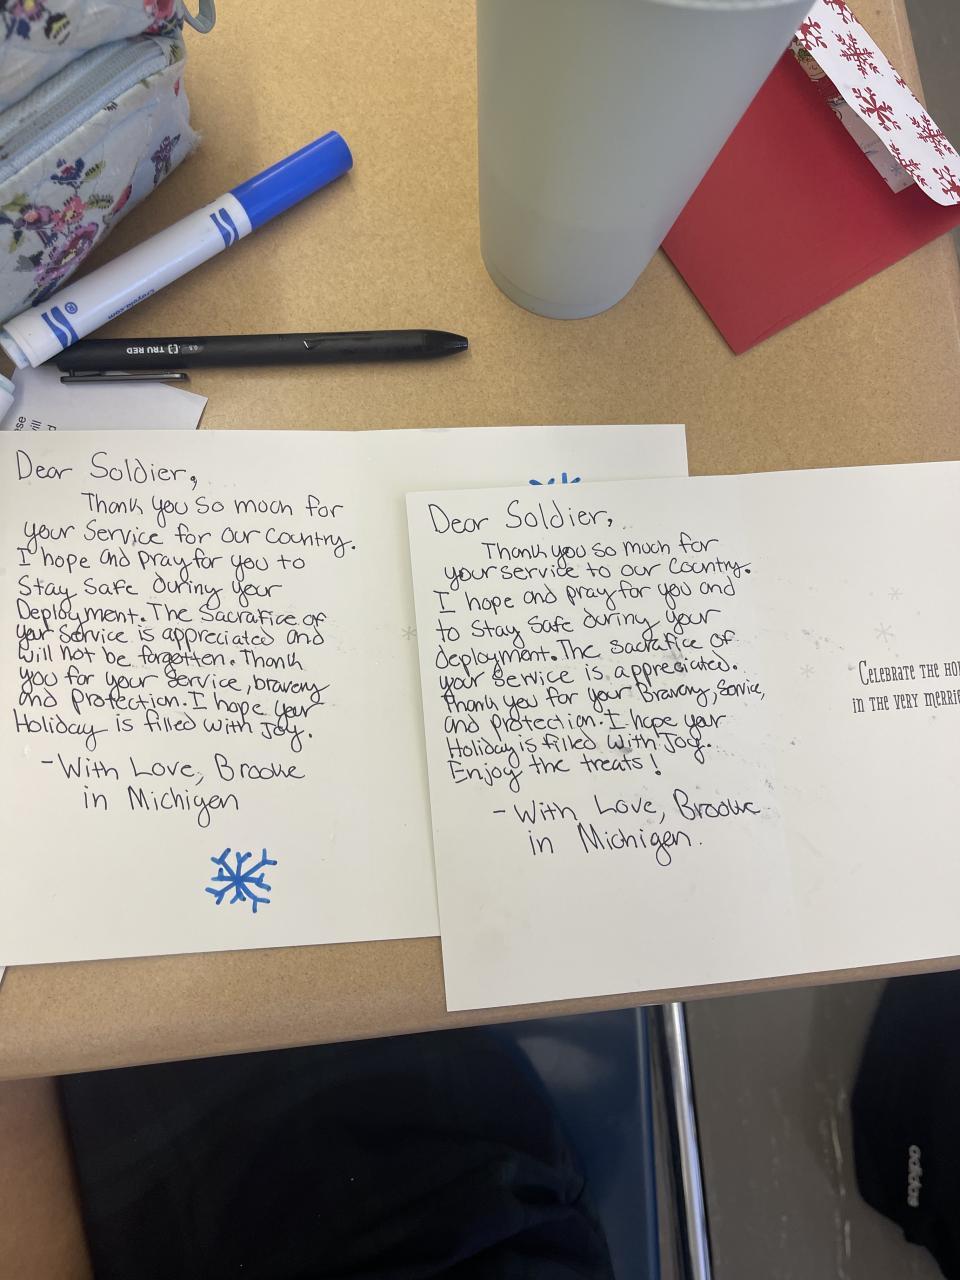 Crayola.com
TRU RED
0.5
ese
will
d
Dear Soldier,
Thank you so much for
your Service for our Country.
I hope and pray for you to
Stay safe during your
Deployment. The Sacrafice of
your Service is appreciated and
will not be forgotten. Thank
you for your Service, bravery
and Protection. I hope your
Holiday is filled with Joy.
- With Love, Brooke
in Michigen
Dear Soldier,
Thank you so much for
your service to our Country.
I hope and pray for you and
to Stay Safe during your
deployment. The Sacrafice of
your Service is appreciated.
Thank you for your Bravery, Service,
and protection. I hope your
Holiday is filled with Joy.
Enjoy the treats!
- With Love, Brooke
in Michigen.
CELEBRATE THE HOL
IN THE VERY MERRIE
adidas